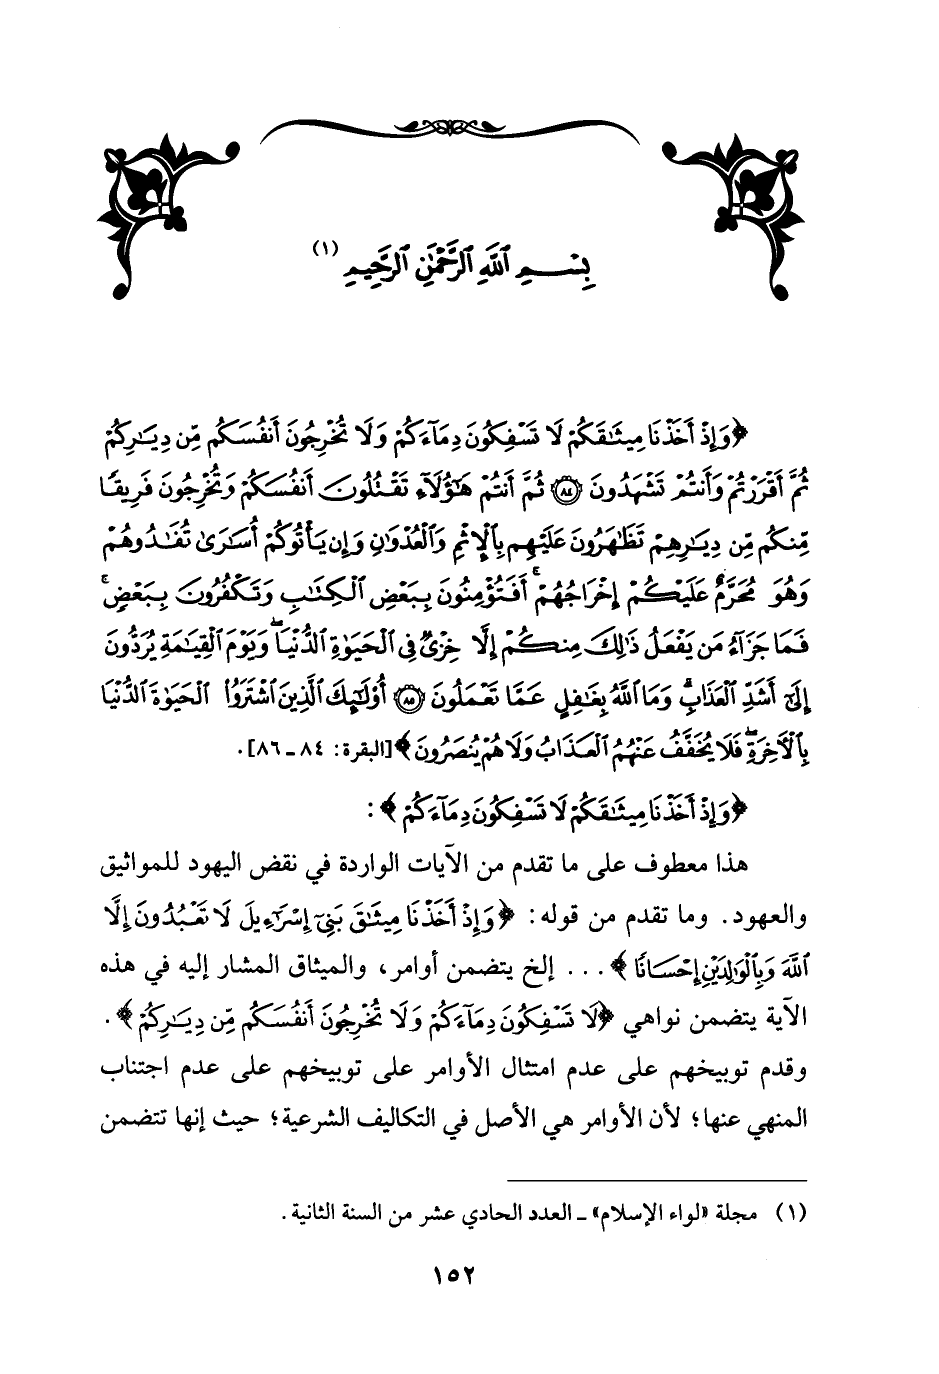 بِسْمِ ٱللَّهِ ٱلرَّحْمَٰنِ ٱلرَّحِيمِ (١)
﴿وَإِذْ أَخَذْنَا مِيثَٰقَكُمْ لَا تَسْفِكُونَ دِمَآءَكُمْ وَلَا تُخْرِجُونَ أَنفُسَكُم مِّن دِيَٰرِكُمْ
ثُمَّ أَقْرَرْتُمْ وَأَنتُمْ تَشْهَدُونَ ۝٨٤ ثُمَّ أَنتُمْ هَٰٓؤُلَآءِ تَقْتُلُونَ أَنفُسَكُمْ وَتُخْرِجُونَ فَرِيقًا
مِّنكُم مِّن دِيَٰرِهِمْ تَظَٰهَرُونَ عَلَيْهِم بِٱلْإِثْمِ وَٱلْعُدْوَٰنِ وَإِن يَأْتُوكُمْ أُسَٰرَىٰ تُفَٰدُوهُمْ
وَهُوَ مُحَرَّمٌ عَلَيْكُمْ إِخْرَاجُهُمْ ۚ أَفَتُؤْمِنُونَ بِبَعْضِ ٱلْكِتَٰبِ وَتَكْفُرُونَ بِبَعْضٍ ۚ
فَمَا جَزَآءُ مَن يَفْعَلُ ذَٰلِكَ مِنكُمْ إِلَّا خِزْىٌ فِى ٱلْحَيَوٰةِ ٱلدُّنْيَا ۖ وَيَوْمَ ٱلْقِيَٰمَةِ يُرَدُّونَ
إِلَىٰٓ أَشَدِّ ٱلْعَذَابِ ۗ وَمَا ٱللَّهُ بِغَٰفِلٍ عَمَّا تَعْمَلُونَ ۝٨٥ أُو۟لَٰٓئِكَ ٱلَّذِينَ ٱشْتَرَوُا۟ ٱلْحَيَوٰةَ ٱلدُّنْيَا
بِٱلْأَخِرَةِ ۖ فَلَا يُخَفَّفُ عَنْهُمُ ٱلْعَذَابُ وَلَا هُمْ يُنصَرُونَ﴾ [البقرة: ٨٤ ـ ٨٦].
﴿وَإِذْ أَخَذْنَا مِيثَٰقَكُمْ لَا تَسْفِكُونَ دِمَآءَكُمْ﴾:
هذا معطوف على ما تقدم من الآيات الواردة في نقض اليهود للمواثيق
والعهود. وما تقدم من قوله: ﴿وَإِذْ أَخَذْنَا مِيثَٰقَ بَنِىٓ إِسْرَٰٓءِيلَ لَا تَعْبُدُونَ إِلَّا
ٱللَّهَ وَبِٱلْوَٰلِدَيْنِ إِحْسَانًا﴾ ... إلخ يتضمن أوامر، والميثاق المشار إليه في هذه
الآية يتضمن نواهي ﴿لَا تَسْفِكُونَ دِمَآءَكُمْ وَلَا تُخْرِجُونَ أَنفُسَكُم مِّن دِيَٰرِكُمْ﴾.
وقدم توبيخهم على عدم امتثال الأوامر على توبيخهم على عدم اجتناب
المنهي عنها؛ لأن الأوامر هي الأصل في التكاليف الشرعية؛ حيث إنها تتضمن
(١) مجلة «لواء الإسلام» ـ العدد الحادي عشر من السنة الثانية.
١٥٢